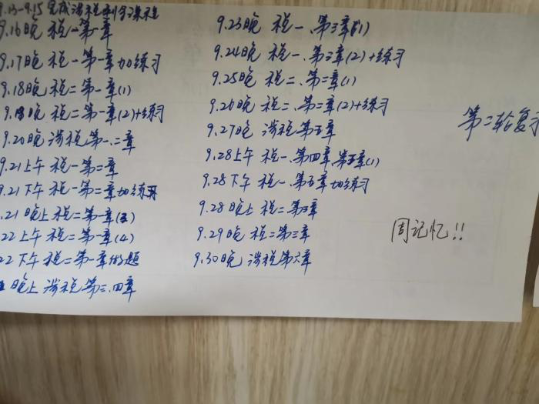 9.13-9.15 完成涉税
9.16晚 税一第一章
9.17晚 税一第一章加练习
9.18晚 税二第一章(1)
9.18晚 税二第一章(2)+练习
9.20晚 涉税第一、二章
9.21上午 税一第二章
9.21下午 税一第二章加练习
.21晚上 税二第一章(3)
22上午 税二第一章(4)
22下午 税二第一章做题
晚上 涉税第三、四章
9.23晚 税一、第三章(1)
9.24晚 税一、第三章(2)+练习
9.25晚 税二、第二章(1)
9.26晚 税二、第二章(2)+练习
9.27晚 涉税第五章
9.28上午 税一、第四章、第五章(1)
9.28下午 税一、第五章加练习
9.28晚上 税二第三章
9.29晚 税二第三章
9.30晚 涉税第六章
第二轮复习
周记忆!!